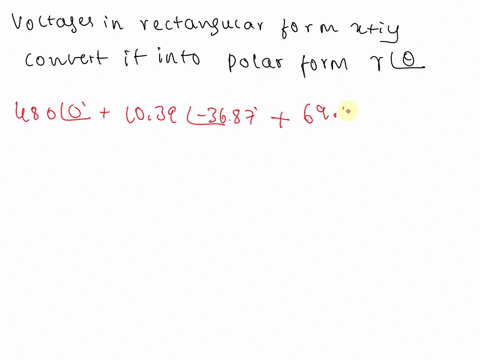 Voltages in rectangular form x+iy
convert it into polar form r∠θ
480∠0° + 10.39∠-36.87° + 69.